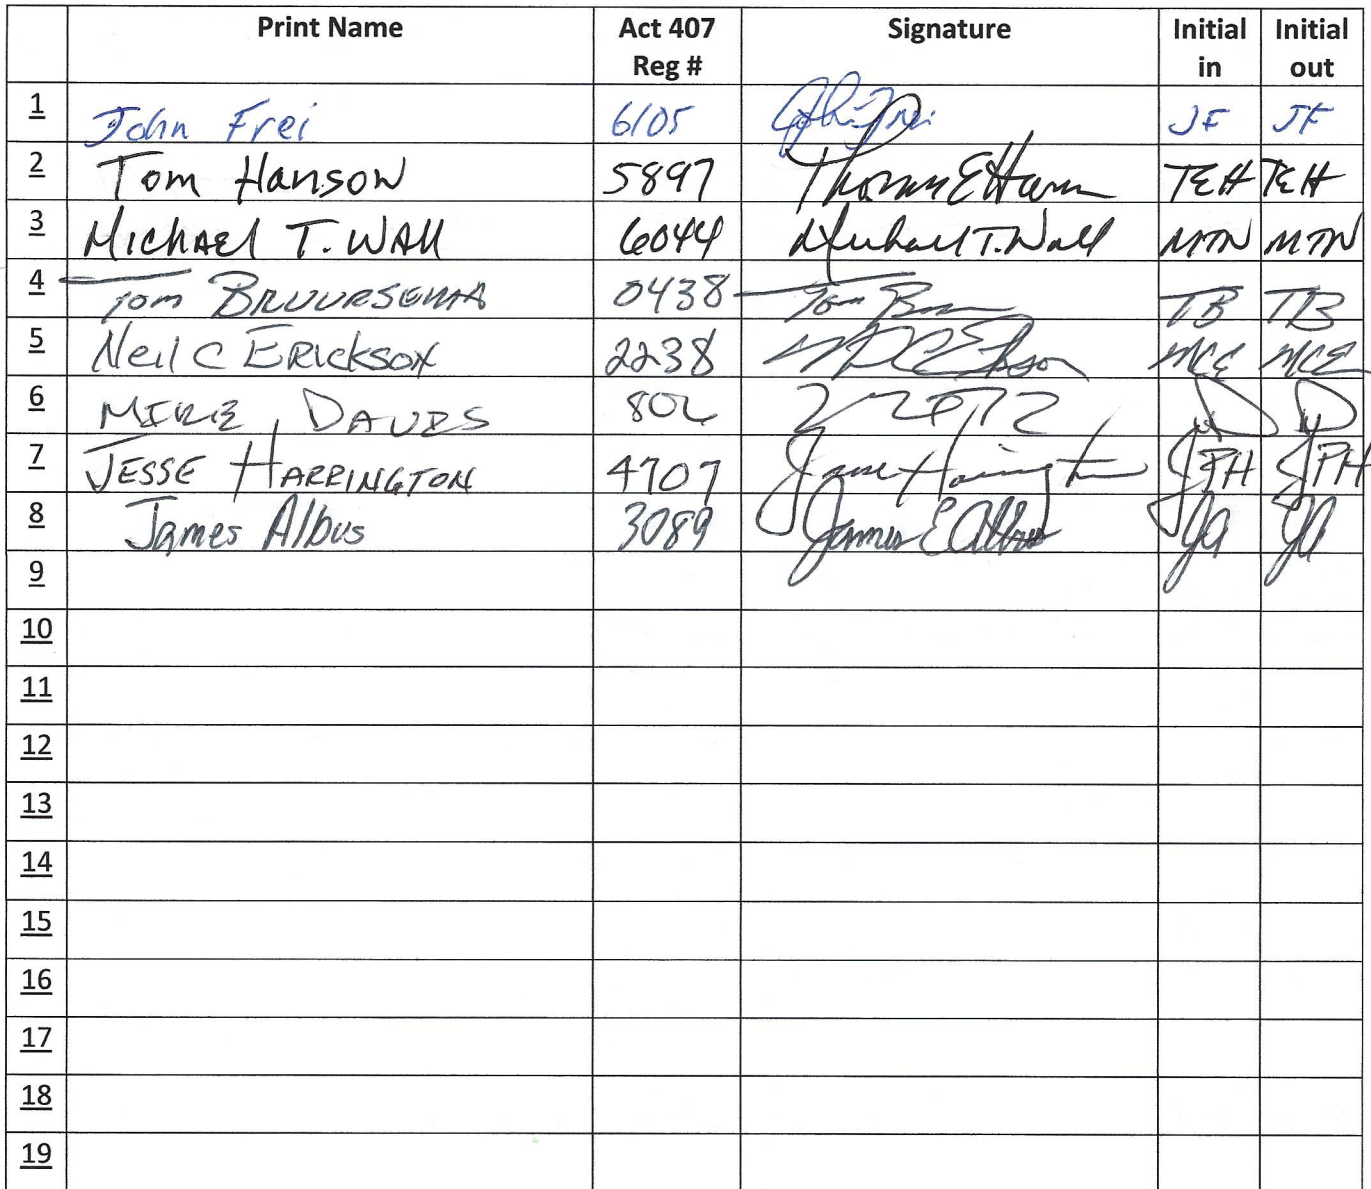 Print Name Act 407 Reg # Signature Initial in Initial out
1 John Frei 6105 John Frei JF JF
2 Tom Hanson 5897 Thomas E Hanson TEH TEH
3 Michael T. Wall 6044 Michael T. Wall MTW MTW
4 Tom BRUURSEMA 0438 Tom TB TB
5 Neil C ERICKSON 2238 NCE NCE
6 MIKE DAVIS 802
7 JESSE HARRINGTON 4707 Jesse Harrington JPH JPH
8 James Albus 3089 James E Albus JA JA
9
10
11
12
13
14
15
16
17
18
19